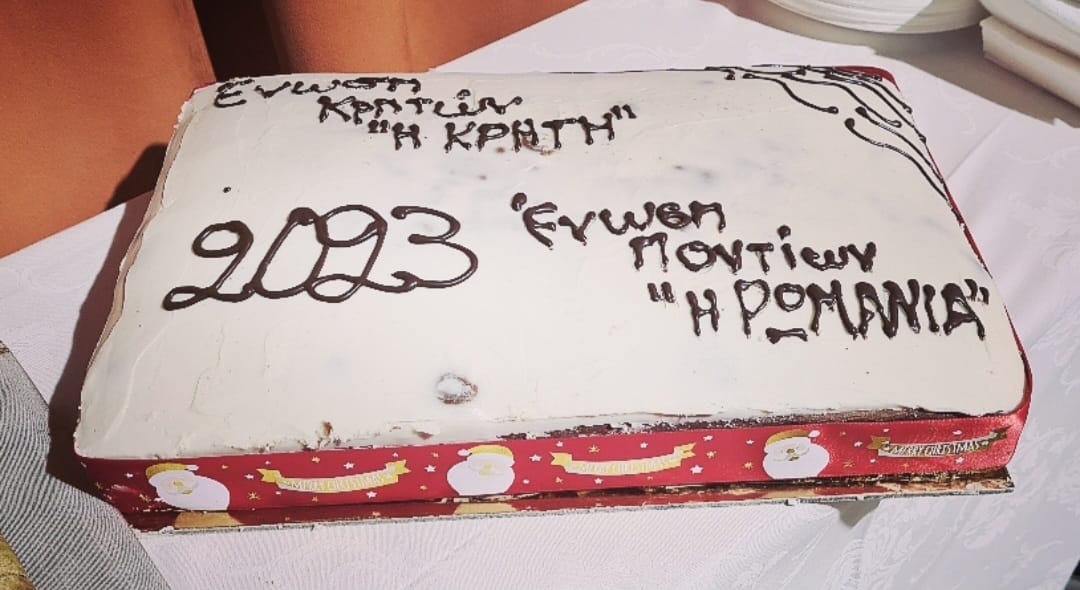 Ενωση
Κρητών
"Η ΚΡΗΤΗ"
2023
Ένωση
Ποντίων
"Η ΡΩΜΑΝΙΑ"
MERRY CHRISTMAS
MERRY CHRISTMAS
MERRY CHRISTMAS